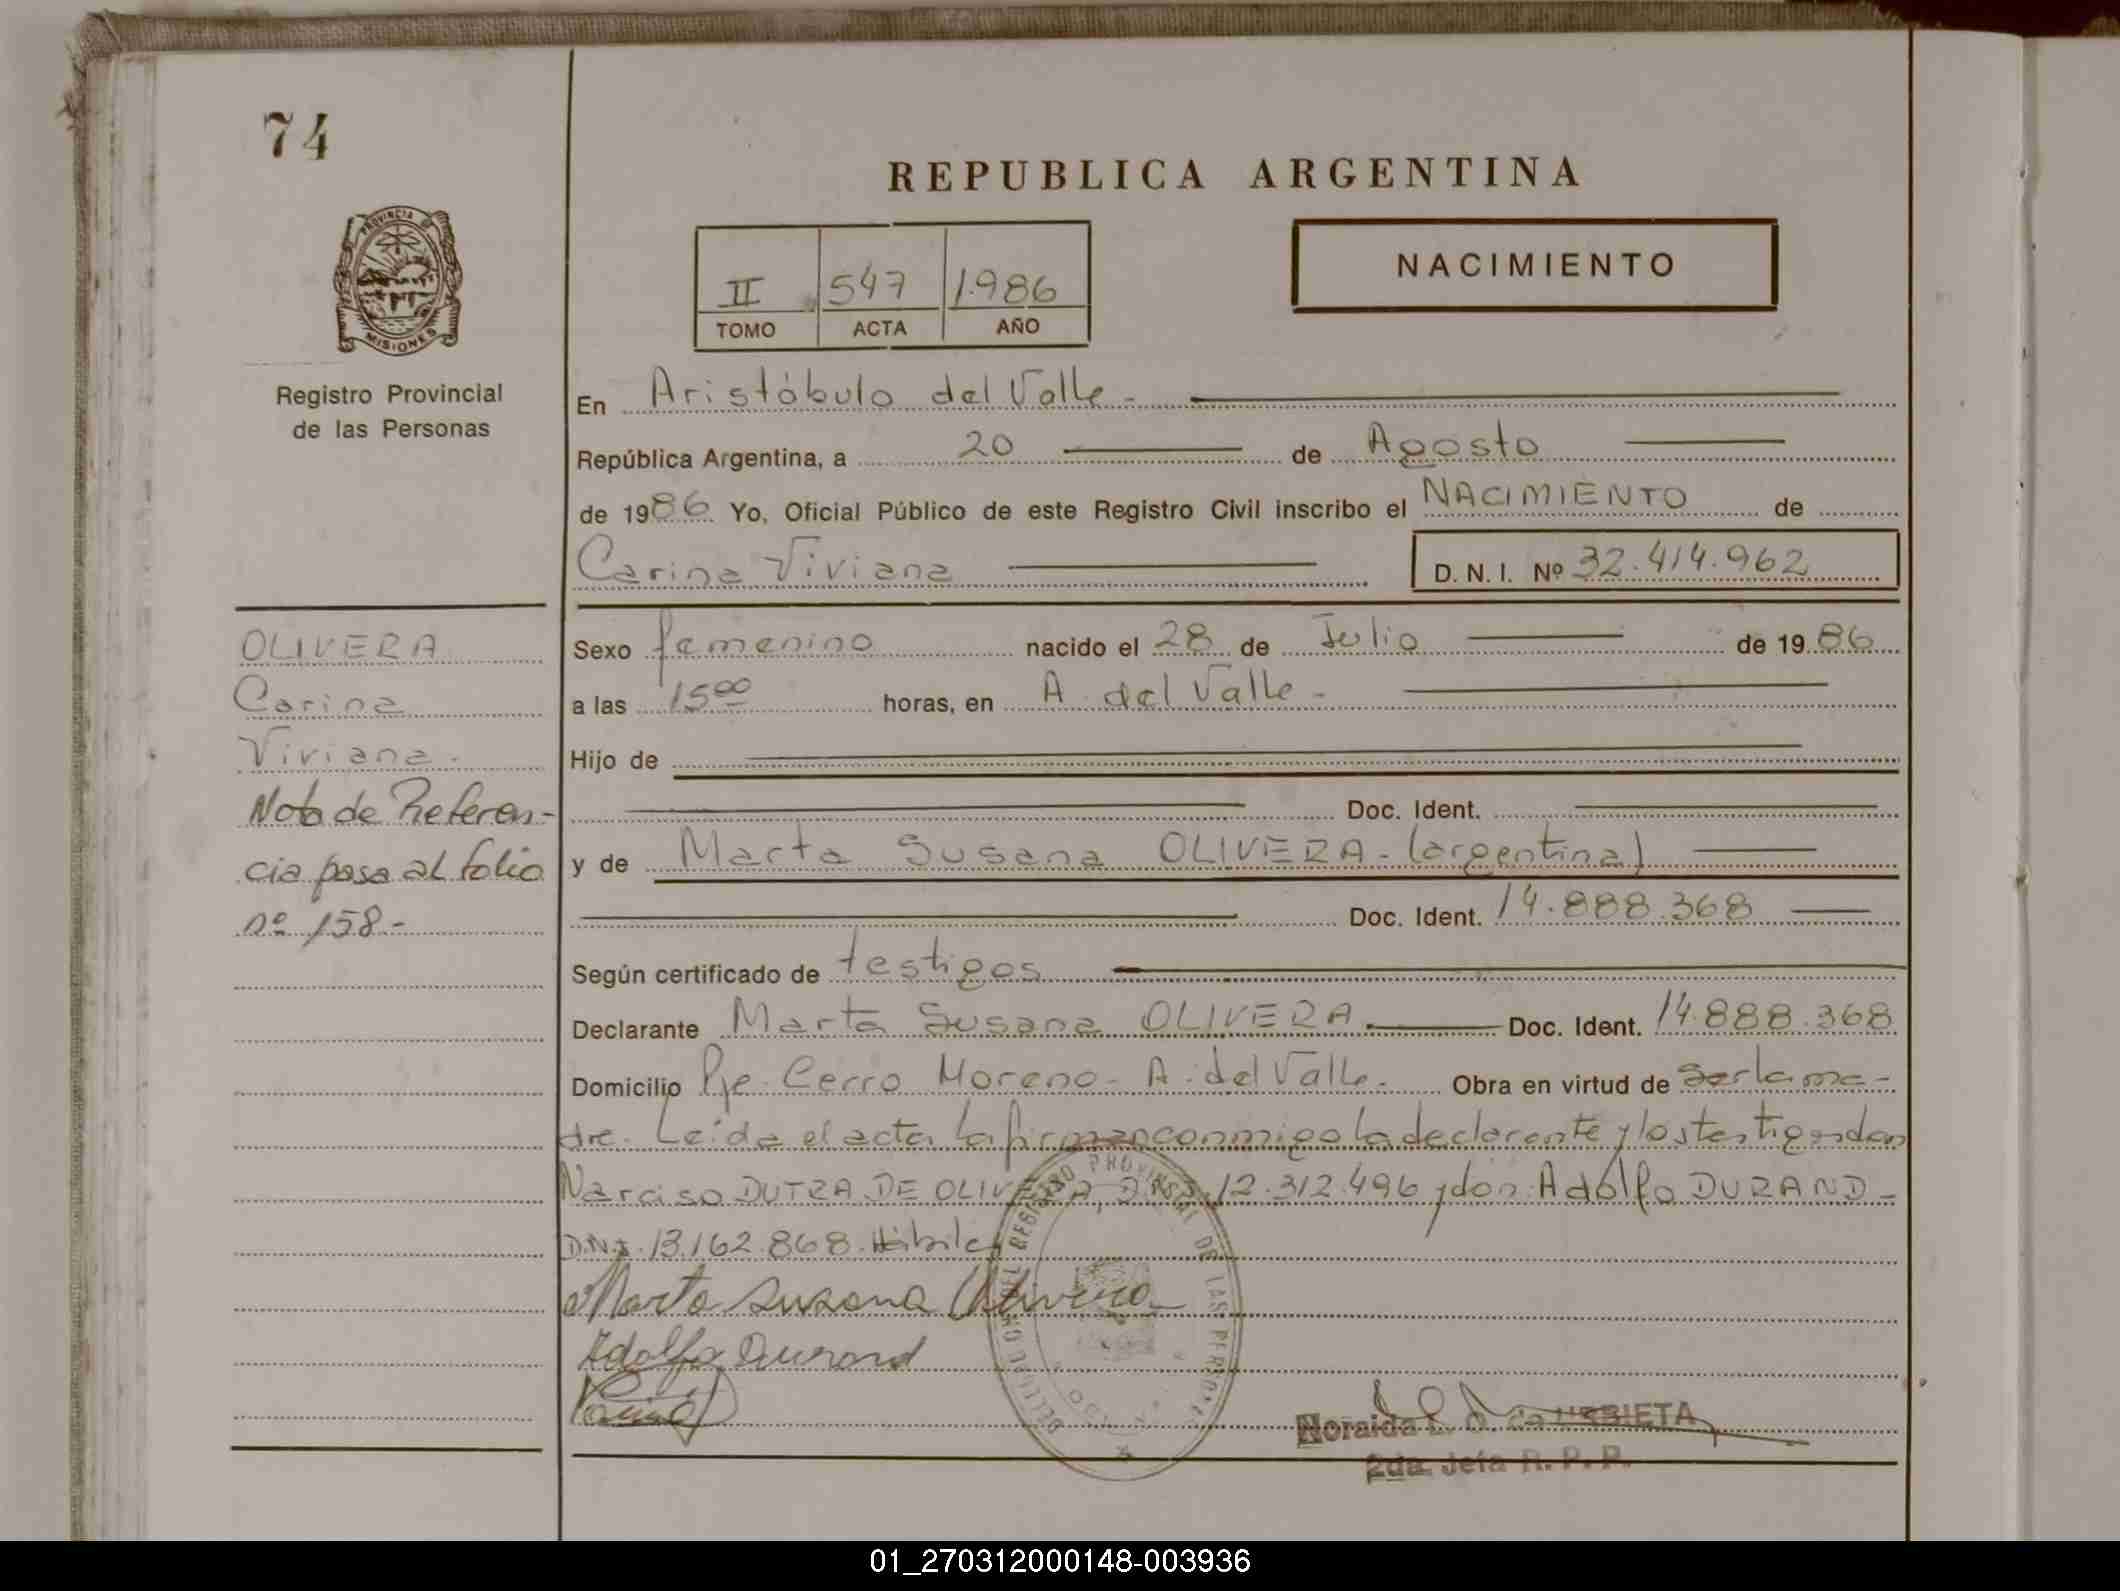 74
REPUBLICA ARGENTINA
NACIMIENTO
II 547 1.986
TOMO ACTA AÑO
PROVINCIA D
MISIONES
Registro Provincial
de las Personas
En Aristóbulo del Valle-
República Argentina, a 20 de Agosto
de 1986 Yo, Oficial Público de este Registro Civil inscribo el NACIMIENTO de
Carina Viviana D. N. I. Nº 32.414.962
OLIVERA
Carina
Viviana.
Nota de Referen-
cia pasa al folio
nº 158-
Sexo femenino nacido el 28 de Julio de 1986
a las 15⁰⁰ horas, en A. del Valle-
Hijo de
Doc. Ident.
y de Marta Susana OLIVERA-(argentina)
Doc. Ident. 14.888.368
Según certificado de testigos
Declarante Marta Susana OLIVERA Doc. Ident. 14.888.368
Domicilio Pje. Cerro Moreno- A. del Valle. Obra en virtud de ser la ma-
dre. Leída el acta la firman conmigo la declarante y los testigos don
Narciso DUTRA DE OLIVERA, D.N.I. 12.312.496 y don Adolfo DURAND-
D.N.I. 13.162.868. Hábiles
Marta Susana Olivera
Adolfo Durand
REGISTRO PROVINCIAL DE LAS PERSONAS
Noraida L. O. de URBIETA
2da. Jefa R. P. P.
01_270312000148-003936